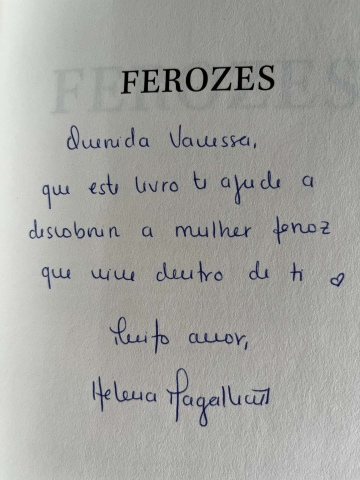 FEROZES
Querida Vanessa,
que este livro te ajude a
descobrir a mulher feroz
que vive dentro de ti ♡
Muito amor,
Helena Magalhães